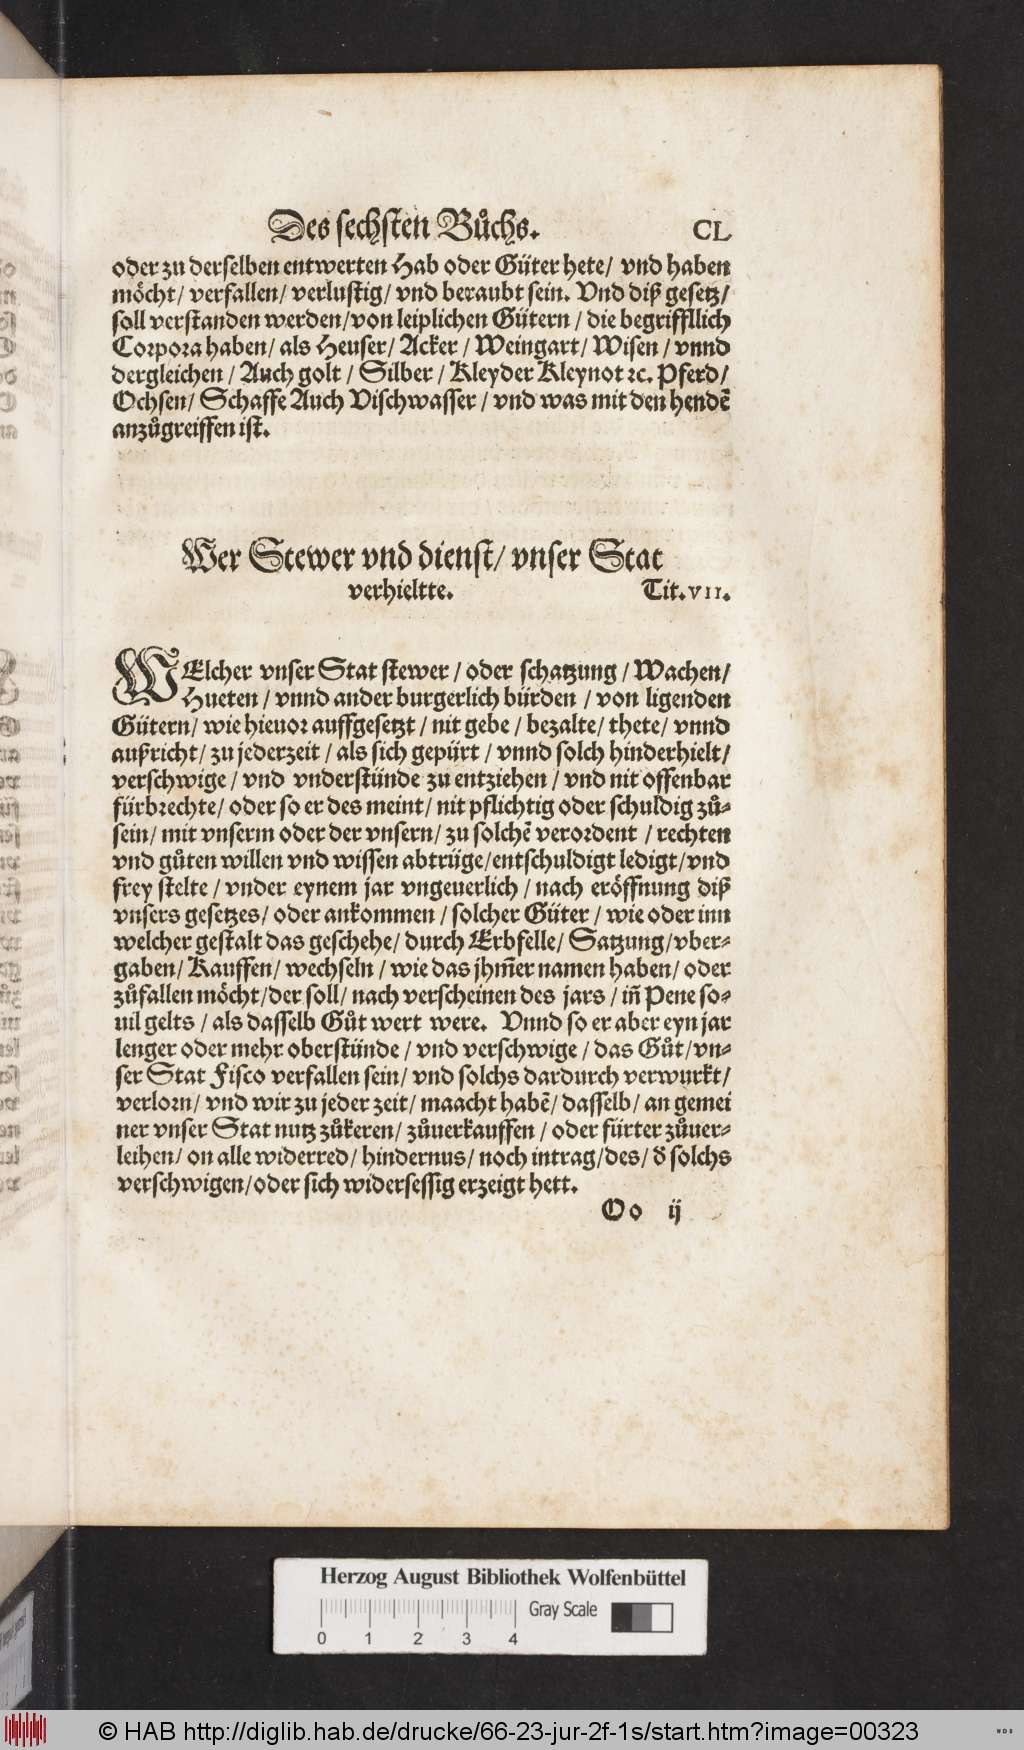 Des sechsten Bůchs. CL
oder zu derselben entwerten Hab oder Güter hete/ vnd haben
möcht/ verfallen/ verlustig/ vnd beraubt sein. Vnd diß gesetz/
soll verstanden werden/von leiplichen Gütern / die begriffllich
Corpora haben/ als Heuser/ Acker / Weingart/ Wisen / vnnd
dergleichen / Auch golt / Silber / Kleyder Kleynot ꝛc. Pferd/
Ochsen/ Schaffe Auch Vischwasser / vnd was mit den hendẽ
anzůgreiffen ist.
Wer Stewer vnd dienst/ vnser Stat
verhieltte. Tit. VII.
WElcher vnser Stat stewer / oder schatzung / Wachen/
Hueten / vnnd ander burgerlich bürden / von ligenden
Gütern/ wie hieuor auffgesetzt / nit gebe / bezalte/ thete/ vnnd
außricht/ zu jederzeit / als sich gepürt / vnnd solch hinderhielt/
verschwige / vnd vnderstünde zu entziehen / vnd nit offenbar
fürbrechte/ oder so er des meint/ nit pflichtig oder schuldig zů-
sein/ mit vnserm oder der vnsern/ zu solchẽ verordent / rechten
vnd gůten willen vnd wissen abtrüge/entschuldigt ledigt/vnd
frey stelte / vnder eynem jar vngeuerlich / nach eröffnung diß
vnsers gesetzes/ oder ankommen / solcher Güter / wie oder inn
welcher gestalt das geschehe/ durch Erbfelle/ Satzung/vber-
gaben/ Kauffen/ wechseln / wie das jhm̃er namen haben/ oder
zůfallen möcht/der soll/ nach verscheinen des jars / iñ Pene so-
uil gelts / als dasselb Gůt wert were. Vnnd so er aber eyn jar
lenger oder mehr oberstünde / vnd verschwige / das Gůt/vn-
ser Stat Fisco verfallen sein/ vnd solchs dardurch verwurkt/
verlorn/ vnd wir zu jeder zeit/ maacht habẽ/ dasselb/ an gemei
ner vnser Stat nutz zůkeren/ zůuerkauffen / oder fürter zůuer-
leihen/ on alle widerred/ hindernus/ noch intrag/des/ ð solchs
verschwigen/oder sich widersessig erzeigt hett.
Oo ij
Herzog August Bibliothek Wolfenbüttel
Gray Scale
0 1 2 3 4
© HAB http://diglib.hab.de/drucke/66-23-jur-2f-1s/start.htm?image=00323